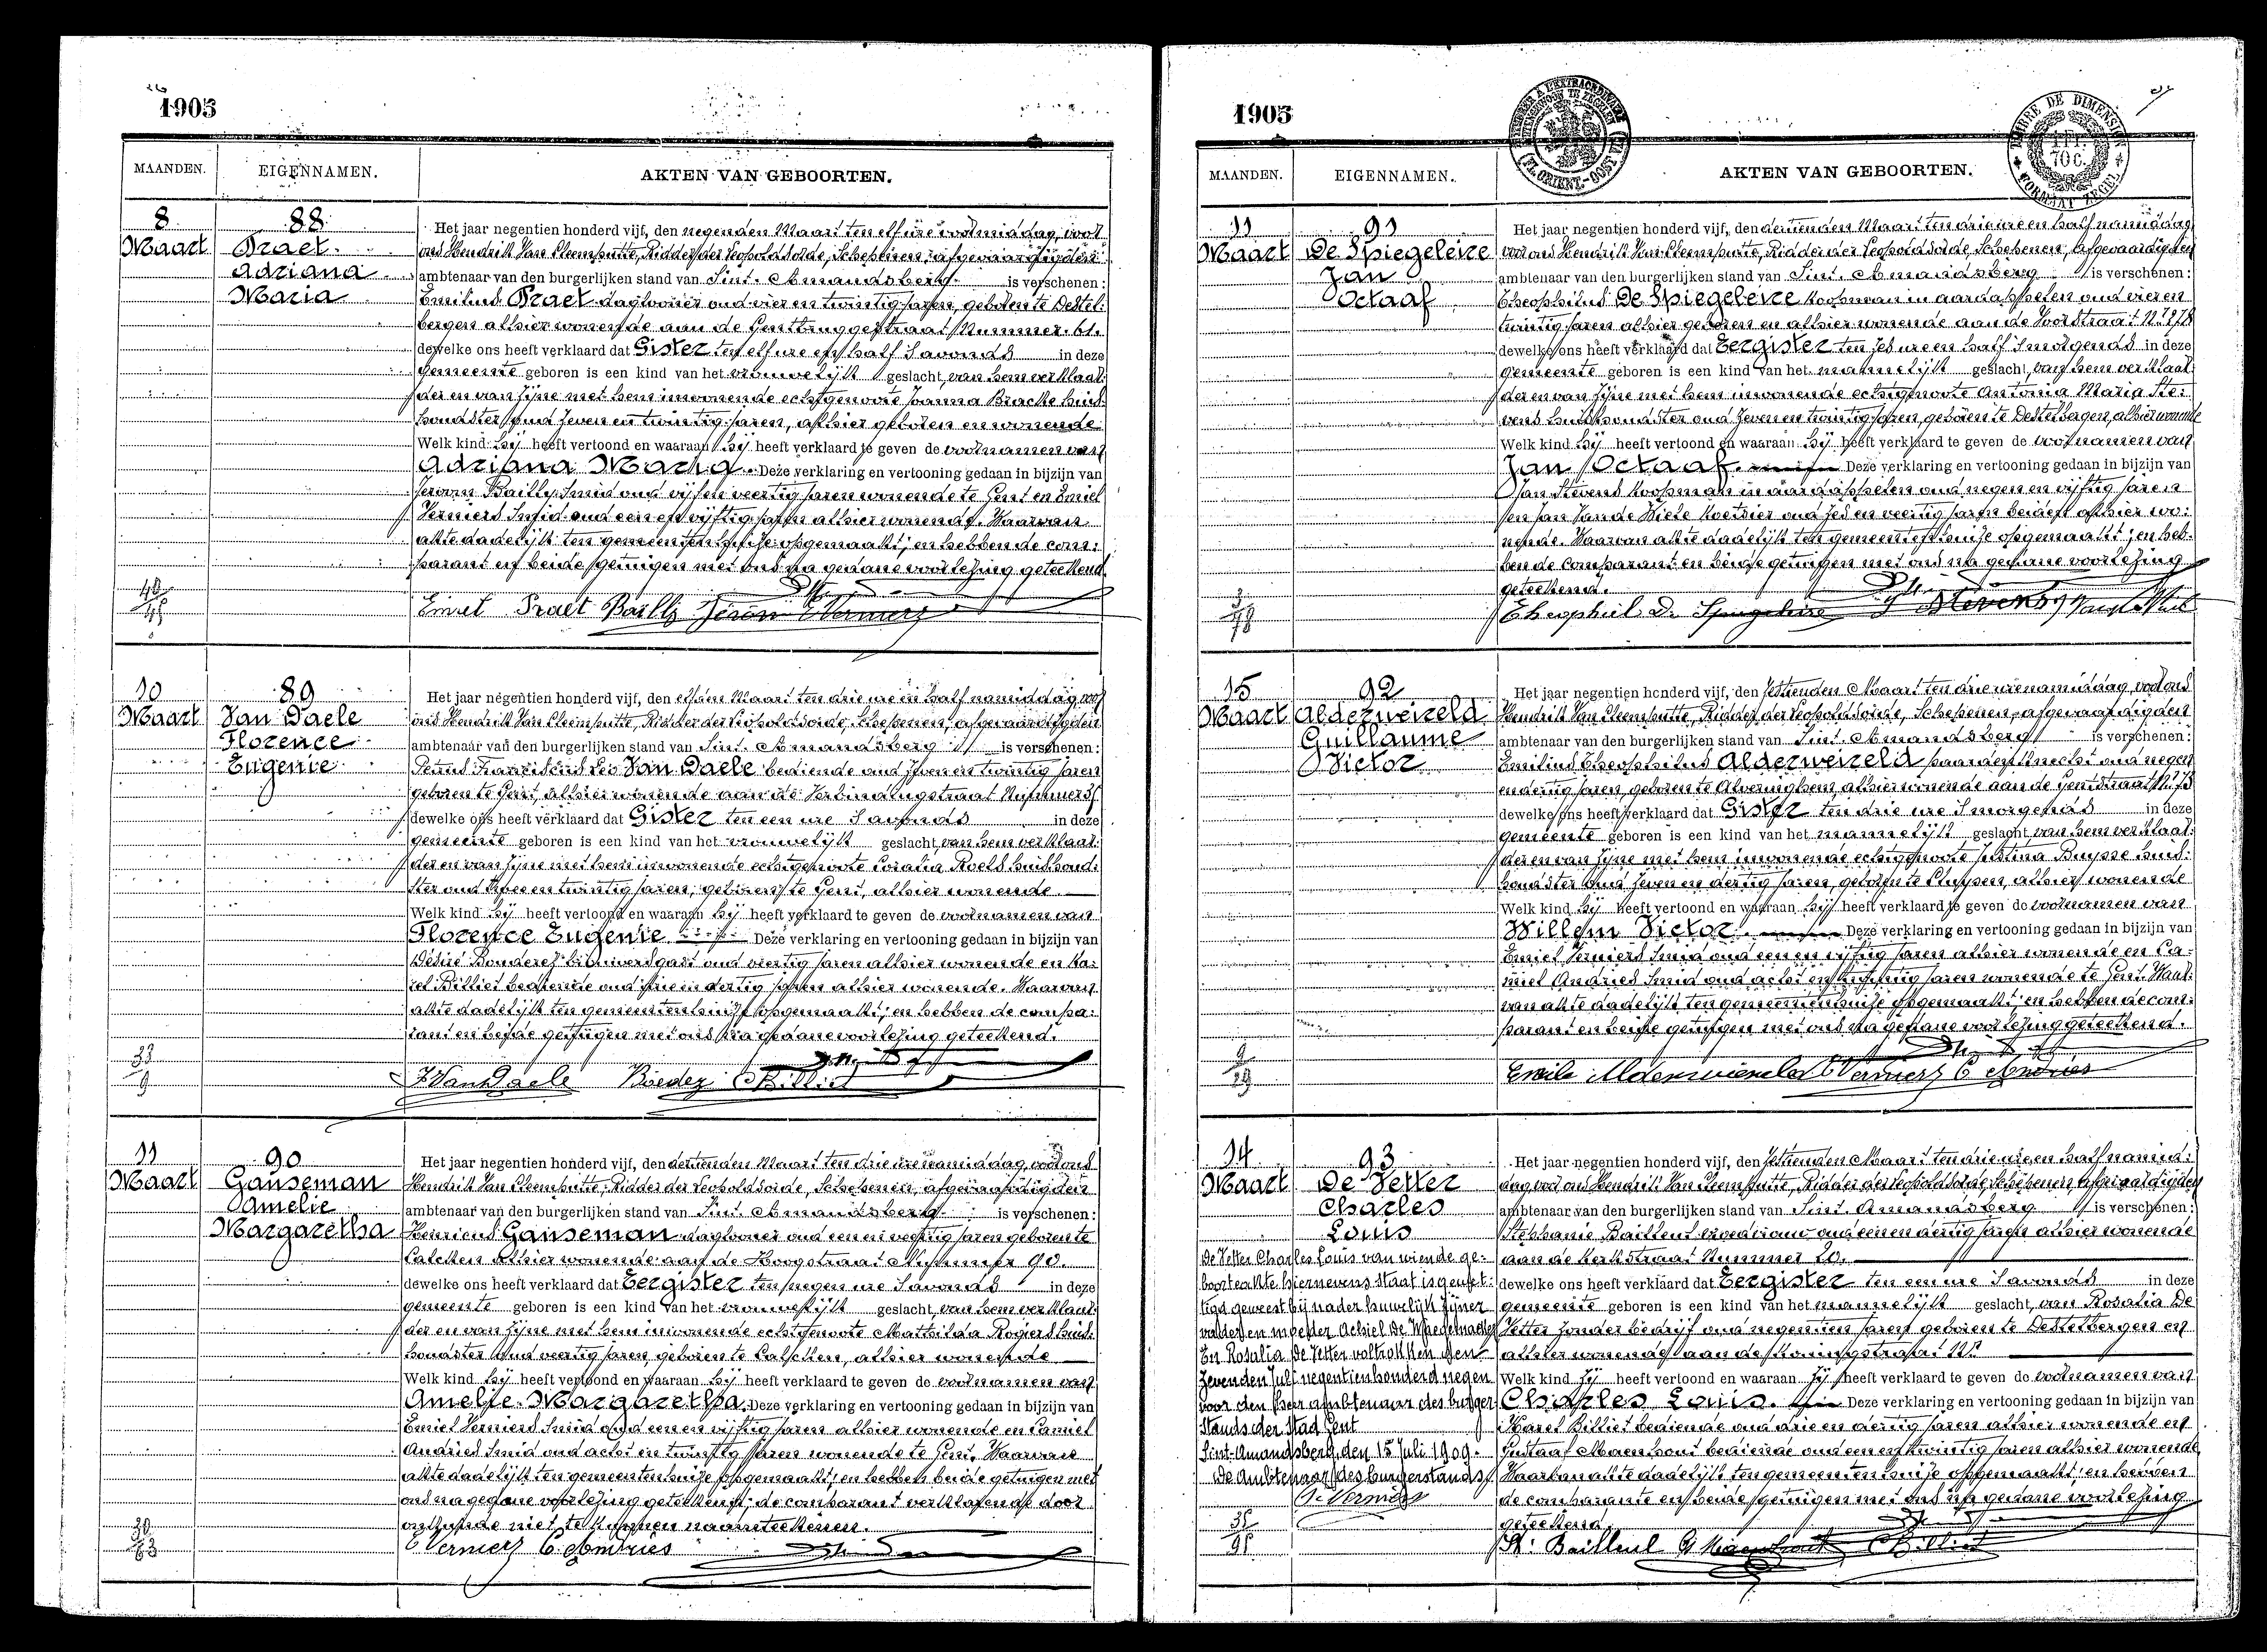 1905
MAANDEN. EIGENNAMEN. AKTEN VAN GEBOORTEN.
8 Maart
88
Praet
Adriana
Maria
Het jaar negentien honderd vijf, den negenden Maart ten elf ure voormiddag, voor
ons Hendrik Van Cleemputte, Ridder der Leopoldsorde, Schepenen, afgevaardigden
ambtenaar van den burgerlijken stand van Sint-Amandsberg is verschenen:
Emilius Praet daglooner oud vier en twintig jaren, geboren te Destel-
bergen alhier wonende aan de Gentbruggestraat Nummer 61.
dewelke ons heeft verklaard dat Gister ten elf ure en half 's avonds in deze
gemeente geboren is een kind van het vrouwelijk geslacht, van hem verklaar-
der en van zijne met hem inwonende echtgenoote Joanna Bracke huis-
houdster oud zeven en twintig jaren, alhier geboren en wonende.
Welk kind hij heeft vertoond en waaraan hij heeft verklaard te geven de voornamen van
Adriana Maria. Deze verklaring en vertooning gedaan in bijzijn van
Jeroom Bailly Smid oud vijf en veertig jaren wonende te Gent en Emiel
Verniers Smid oud een en vijftig jaren alhier wonende. Waarvan
akte dadelijk ten gemeentenhuize opgemaakt; en hebben de com-
parant en beide getuigen met ons na gedane voorlezing geteekend.
Emiel Praet Bailly Jeroom E Verniers
10 Maart
89
Van Daele
Florence
Eugenie
Het jaar negentien honderd vijf, den elfden Maart ten drie ure en half namiddag, voor
ons Hendrik Van Cleemputte, Ridder der Leopoldsorde, Schepenen, afgevaardigden
ambtenaar van den burgerlijken stand van Sint-Amandsberg is verschenen:
Petrus Franciscus Van Daele bediende oud zeven en twintig jaren
geboren te Gent, alhier wonende aan de Verbindingstraat Nummer
dewelke ons heeft verklaard dat Gister ten een ure 's avonds in deze
gemeente geboren is een kind van het vrouwelijk geslacht, van hem verklaar-
der en van zijne met hem inwonende echtgenoote Coralia Roels huishoud-
ster oud twee en twintig jaren, geboren te Gent, alhier wonende.
Welk kind hij heeft vertoond en waaraan hij heeft verklaard te geven de voornamen van
Florence Eugenie Deze verklaring en vertooning gedaan in bijzijn van
Désiré oud veertig jaren alhier wonende en Ka-
rel Billiet bediende oud drie en dertig jaren alhier wonende. Waarvan
akte dadelijk ten gemeentenhuize opgemaakt; en hebben de compa-
rant en beide getuigen met ons na gedane voorlezing geteekend.
VanDaele C Billiet
11 Maart
90
Gauseman
Amelie
Margaretha
Het jaar negentien honderd vijf, den dertienden Maart ten drie ure namiddag, voor ons
Hendrik Van Cleemputte, Ridder der Leopoldsorde, Schepenen, afgevaardigden
ambtenaar van den burgerlijken stand van Sint-Amandsberg is verschenen:
Henricus Gauseman daglooner oud een en veertig jaren geboren te
Calcken alhier wonende aan de Hoogstraat Nummer 90.
dewelke ons heeft verklaard dat Eergister ten negen ure 's avonds in deze
gemeente geboren is een kind van het vrouwelijk geslacht, van hem verklaar-
der en van zijne met hem inwonende echtgenoote Mathilda Rogiers huis-
houdster oud veertig jaren, geboren te Calcken, alhier wonende
Welk kind hij heeft vertoond en waaraan hij heeft verklaard te geven de voornamen van
Amelie Margaretha. Deze verklaring en vertooning gedaan in bijzijn van
Emiel Verniers Smid oud een en vijftig jaren alhier wonende en Camiel
Andries Smid oud acht en twintig jaren wonende te Gent. Waarvan
akte dadelijk ten gemeentenhuize opgemaakt; en hebben beide getuigen met
ons na gedane voorlezing geteekend; de comparant verklarende door
onkunde niet te kunnen naamteekenen.
E Verniers C. Andries
1905
MAANDEN. EIGENNAMEN. AKTEN VAN GEBOORTEN.
TIMBRE DE DIMENSION
1 FR. 70 C.
FORMAAT ZEGEL
11 Maart
91
De Spiegeleire
Jan
Octaaf
Het jaar negentien honderd vijf, den dertienden Maart ten drie ure en half namiddag,
voor ons Hendrik Van Cleemputte, Ridder der Leopoldsorde, Schepenen, afgevaardigden
ambtenaar van den burgerlijken stand van Sint-Amandsberg is verschenen:
Theophilus De Spiegeleire koopman in aardappelen oud vier en
twintig jaren alhier geboren en alhier wonende aan de Voorstraat N° 278
dewelke ons heeft verklaard dat Eergister ten zes ure en half 's morgends in deze
gemeente geboren is een kind van het mannelijk geslacht, van hem verklaar-
der en van zijne met hem inwonende echtgenoote Antonia Maria Ste-
vens huishoudster oud zeven en twintig jaren, geboren te Destelbergen, alhier wonende
Welk kind hij heeft vertoond en waaraan hij heeft verklaard te geven de voornamen van
Jan Octaaf. Deze verklaring en vertooning gedaan in bijzijn van
Jan Stevens koopman in aardappelen oud negen en vijftig jaren
en Jan Van de Wiele koetsier oud zes en veertig jaren beiden alhier wo-
nende. Waarvan akte dadelijk ten gemeentenhuize opgemaakt; en heb-
ben de comparant en beide getuigen met ons na gedane voorlezing
geteekend.
Theophiel De Spiegeleire J Stevens
15 Maart
92
Alderweireld
Guillaume
Victor
Het jaar negentien honderd vijf, den zestienden Maart ten drie ure namiddag, voor ons
Hendrik Van Cleemputte, Ridder der Leopoldsorde, Schepenen, afgevaardigden
ambtenaar van den burgerlijken stand van Sint-Amandsberg is verschenen:
Emilius Theophilus Alderweireld paardenknecht oud negen
en dertig jaren, geboren te Alveringhem, alhier wonende aan de Gentstraat N° 73
dewelke ons heeft verklaard dat Gister ten drie ure 's morgends in deze
gemeente geboren is een kind van het mannelijk geslacht van hem verklaar-
der en van zijne met hem inwonende echtgenoote Justina Buysse huis-
houdster oud zeven en dertig jaren, geboren te Cluysen, alhier wonende
Welk kind hij heeft vertoond en waaraan hij heeft verklaard te geven de voornamen van
Willem Victor. Deze verklaring en vertooning gedaan in bijzijn van
Emiel Verniers Smid oud een en vijftig jaren alhier wonende en Ca-
miel Andries Smid oud acht en twintig jaren wonende te Gent. Waar-
van akte dadelijk ten gemeentenhuize opgemaakt; en hebben de com-
parant en beide getuigen met ons na gedane voorlezing geteekend.
Emile Alderweireld E Verniers C Andries
14 Maart
93
De Vetter
Charles
Louis
De Vetter Charles Louis van wiende ge-
boorteakte hiernevens staat is gewet-
tigd geweest bij nader huwelijk zijner
vader en moeder Achiel De
En Rosalia De Vetter voltrokken den
zevenden Juli negentienhonderd negen
voor den heer ambtenaar des burger
stands der Stad Gent
Sint-Amandsberg, den 15 Juli 1909.
De Ambtenaar des burgerstands,
Het jaar negentien honderd vijf, den zestienden Maart ten drie ure en half namid-
dag voor ons Hendrik Van Cleemputte, Ridder der Leopoldsorde, Schepenen, afgevaardigden
ambtenaar van den burgerlijken stand van Sint-Amandsberg is verschenen:
Stephanie Bailleul vroedvrouw oud een en dertig jaren alhier wonende
aan de Kerkstraat Nummer 20.
dewelke ons heeft verklaard dat Eergister ten een ure 's avonds in deze
gemeente geboren is een kind van het mannelijk geslacht, van Rosalia De
Vetter zonder bedrijf oud negentien jaren geboren te Destelbergen en
alhier wonende aan de Koningstraat N°
Welk kind zij heeft vertoond en waaraan zij heeft verklaard te geven de voornamen van
Charles Louis. Deze verklaring en vertooning gedaan in bijzijn van
Karel Billiet bediende oud drie en dertig jaren alhier wonende en
Gustaaf Maenhout bediende oud een en twintig jaren alhier wonende
Waarvan akte dadelijk ten gemeentenhuize opgemaakt; en hebben
de comparante en beide getuigen met ons na gedane voorlezing
geteekend
St. Bailleul G Maenhout C Billiet